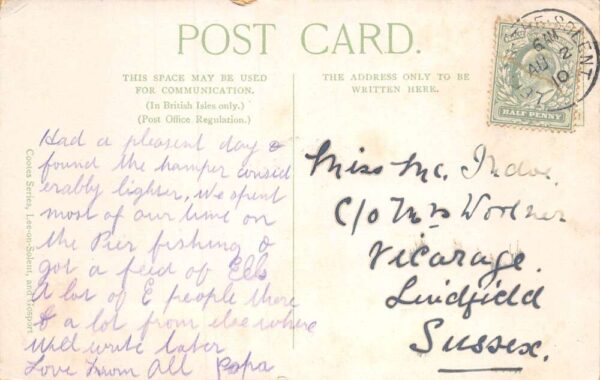 POST CARD.
THIS SPACE MAY BE USED
FOR COMMUNICATION.
(In British Isles only.)
(Post Office Regulation.)
THE ADDRESS ONLY TO BE
WRITTEN HERE.
Had a pleasent day &
found the hamper consid
erably lighter, We spent
most of our time on
the Pier fishing &
got a feed of Eels
A lot of E people there
& a lot from elsewhere
Will write later
Love from All Papa
Cooles Series, Lee-on-Solent, and Gosport
Miss Mc.
C/o Mrs
Vicarage.
Lindfield
Sussex.
HALF PENNY
SOLENT
AU 2
10